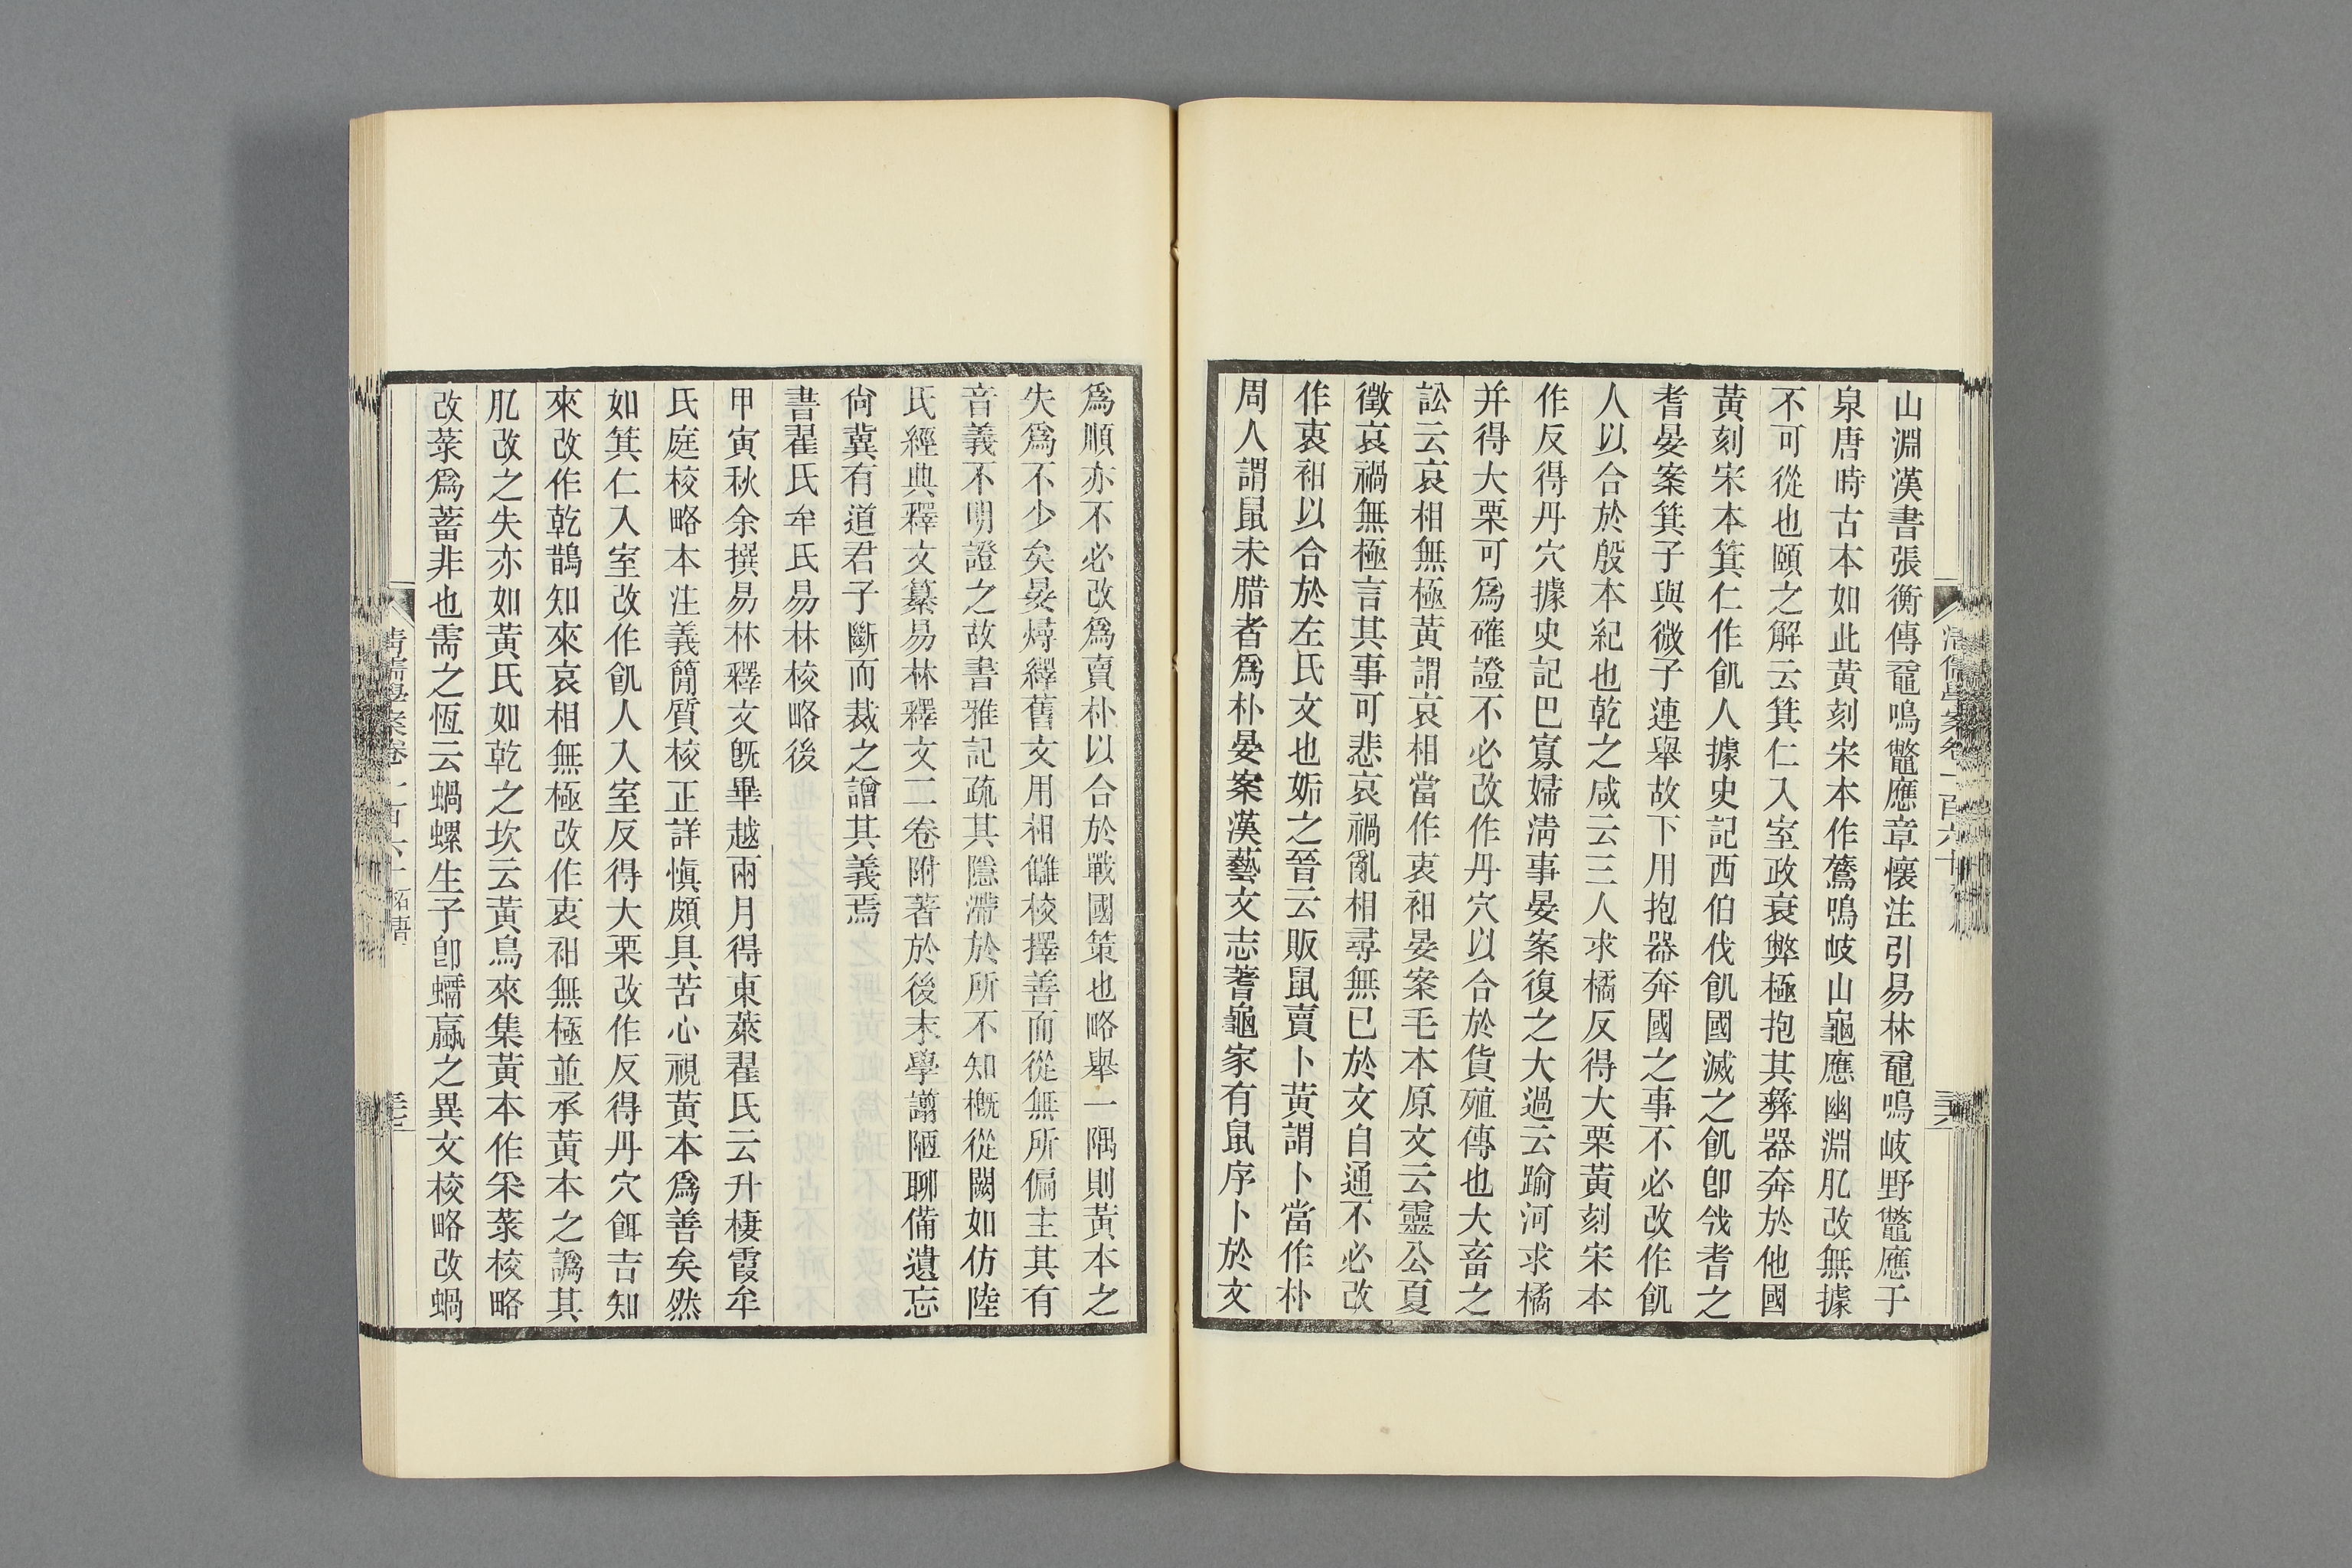 山淵漢書張衡傳黿鳴鼈應章懷注引易林黿鳴岐野鼈應于
泉唐時古本如此黃刻宋本作鶩鳴岐山龜應幽淵肊改無據
不可從也頤之解云箕仁入室政衰弊極抱其彝器奔於他國
黃刻宋本箕仁作飢人據史記西伯伐飢國滅之飢卽㢤耆之
耆晏案箕子與微子連舉故下用抱器奔國之事不必改作飢
人以合於殷本紀也乾之咸云三人求橘反得大栗黃刻宋本
作反得丹穴據史記巴寡婦淸事晏案復之大過云踰河求橘
并得大栗可爲確證不必改作丹穴以合於貨殖傳也大畜之
訟云哀相無極黃謂哀相當作衷衵晏案毛本原文云靈公夏
徵哀禍無極言其事可悲哀禍亂相尋無已於文自通不必改
作衷衵以合於左氏文也姤之晉云販鼠賣卜黃謂卜當作朴
周人謂鼠未腊者爲朴晏案漢藝文志蓍龜家有鼠序卜於文
清儒學案卷一百六十
爲順亦不必改爲賣朴以合於戰國策也略舉一隅則黃本之
失爲不少矣晏燖繹舊文用相讎校擇善而從無所偏主其有
音義不明證之故書雅記疏其隱滯於所不知槪從闕如仿陸
氏經典釋文纂易林釋文二卷附著於後末學譾陋聊備遺忘
尙冀有道君子斷而裁之譄其義焉
書翟氏牟氏易林校略後
甲寅秋余撰易林釋文旣畢越兩月得東萊翟氏云升棲霞牟
氏庭校略本注義簡質校正詳愼頗具苦心視黃本爲善矣然
如箕仁入室改作飢人入室反得大栗改作反得丹穴餌吉知
來改作乾鵲知來哀相無極改作衷衵無極並承黃本之譌其
肊改之失亦如黃氏如乾之坎云黃鳥來集黃本作采菉校略
改菉爲蓄非也需之恆云蝸螺生子卽蠕蠃之異文校略改蝸
清儒學案卷一百六十 柘唐